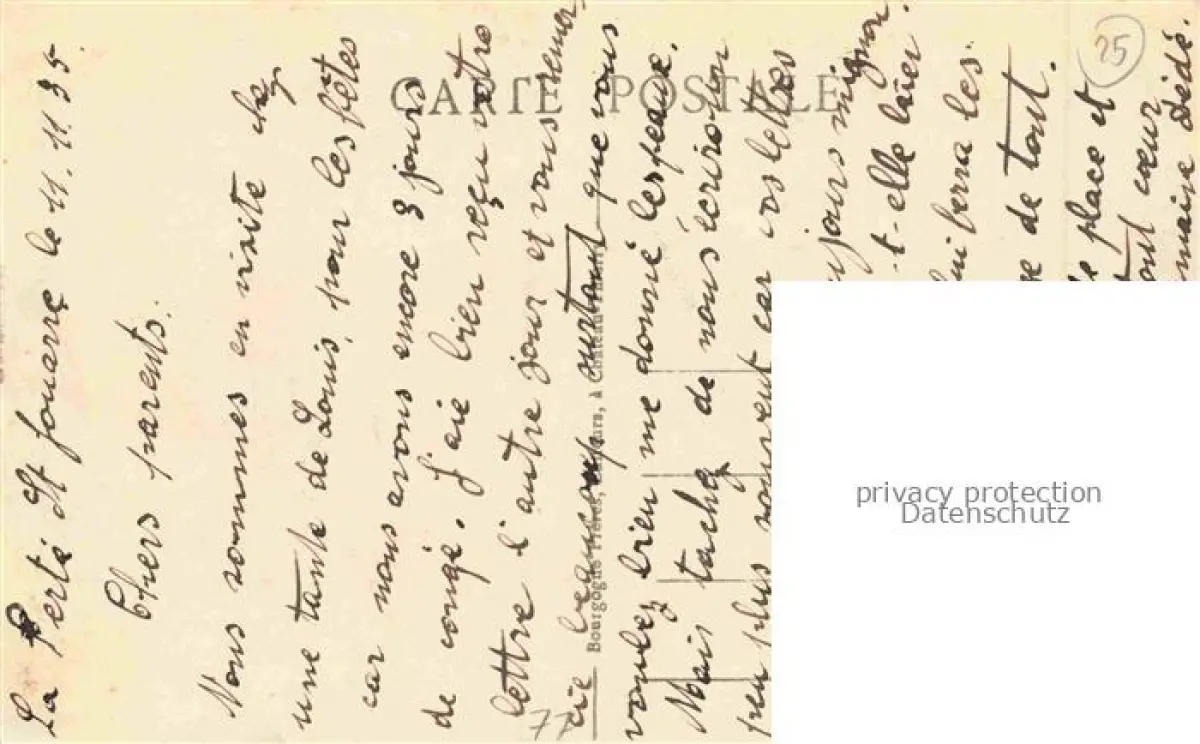 La Ferté St Jouarre le 11.11.35.
Chers parents.
Nous sommes en visite chez
une tante de Louis, pour les fêtes
car nous avons encore 3 jours
de congé. J'aie bien reçu votre
lettre l'autre jour et vous remer,
cie beaucoup surtout que vous
voulez bien me donné les peaux.
Mais tachez de nous écrire un
peu plus souvent car vos lettres
jours mignon.
t-elle
lui ferra les
de tout.
place et
tout cœur
Dédé.
25
CARTE POSTALE
Bourgogne Frères, à Château-Thierry
77
privacy protection
Datenschutz